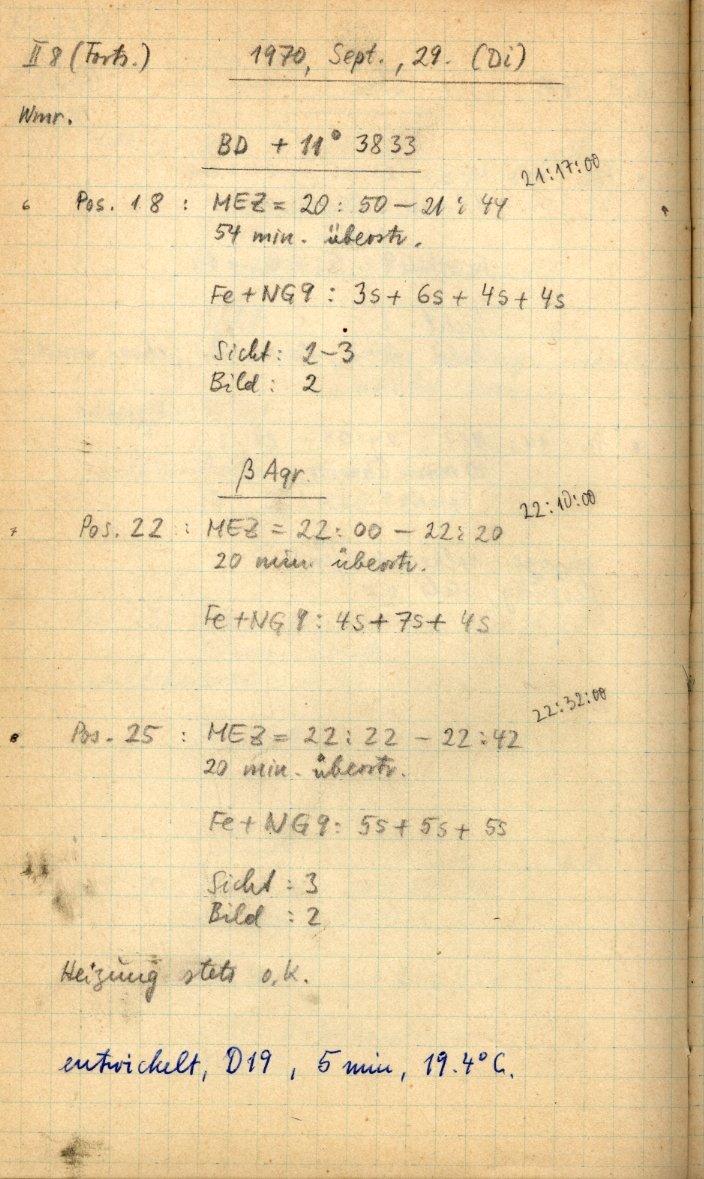 II 8 (Forts.) 1970, Sept., 29. (Di)
Wmr.
BD + 11° 3833
21:17:00
6 Pos. 18 : MEZ = 20:50 – 21:44
54 min. überstr.
Fe+NG9 : 3s + 6s + 4s + 4s
Sicht : 2–3
Bild : 2
β Aqr.
22:10:00
7 Pos. 22 : MEZ = 22:00 – 22:20
20 min. überstr.
Fe+NG9 : 4s + 7s + 4s
22:32:00
8 Pos. 25 : MEZ = 22:22 – 22:42
20 min. überstr.
Fe+NG9 : 5s + 5s + 5s
Sicht : 3
Bild : 2
Heizung stets o.k.
entwickelt, D19, 5 min, 19.4°C.